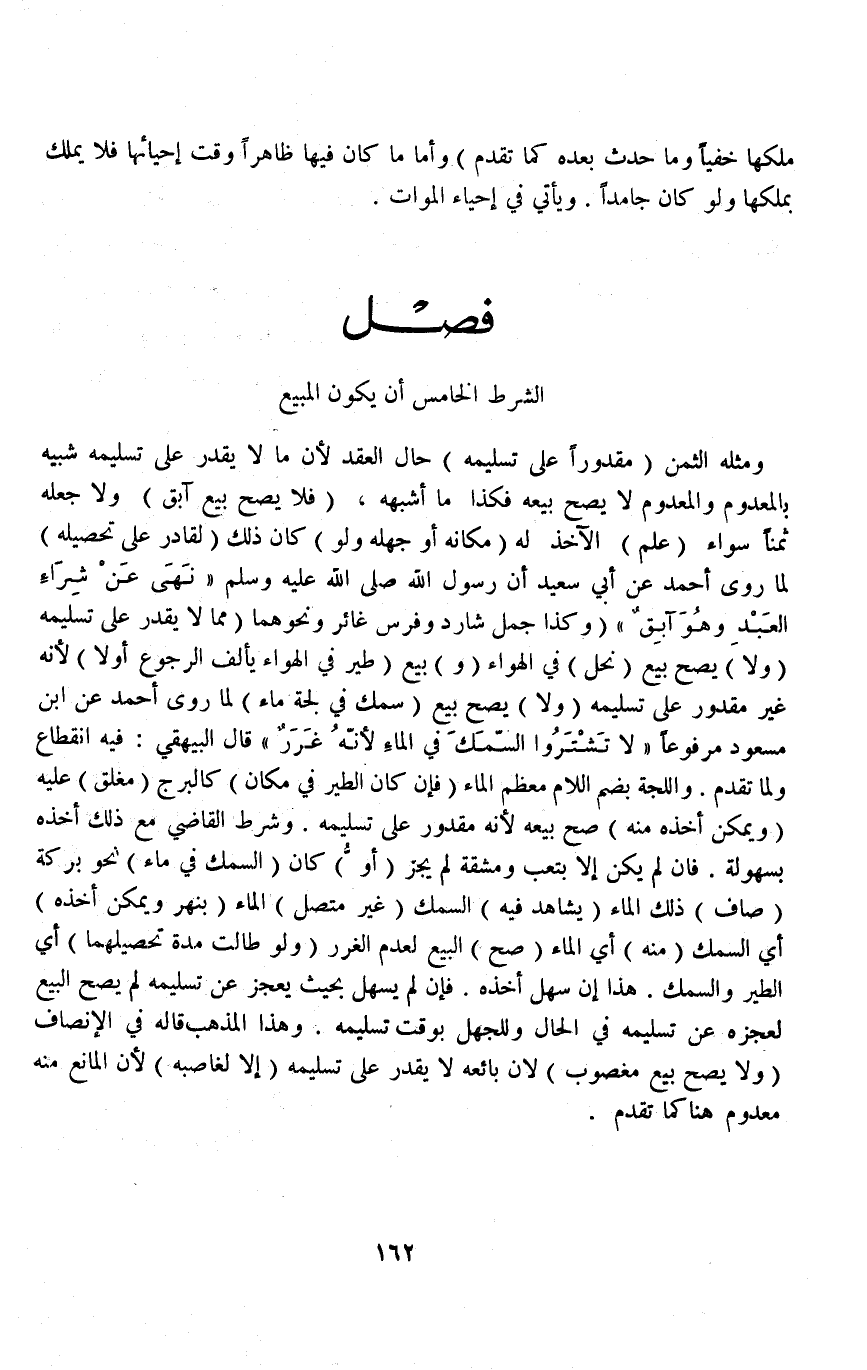 ملكها خفياً وما حدث بعده كما تقدم ) وأما ما كان فيها ظاهراً وقت إحيائها فلا يملك
بملكها ولو كان جامداً . ويأتي في إحياء الموات .
فصل
الشرط الخامس أن يكون المبيع
ومثله الثمن ( مقدوراً على تسليمه ) حال العقد لأن ما لا يقدر على تسليمه شبيه
بالمعدوم والمعدوم لا يصح بيعه فكذا ما أشبهه ، ( فلا يصح بيع آبق ) ولا جعله
ثمناً سواء ( علم ) الآخذ له ( مكانه أو جهله ولو ) كان ذلك ( لقادر على تحصيله )
لما روى أحمد عن أبي سعيد أن رسول الله صلى الله عليه وسلم « نَهَى عَنْ شِرَاءِ
العَبْدِ وهُوَ آبِقٌ » ( وكذا جمل شارد وفرس غائر ونحوهما ( مما لا يقدر على تسليمه
( ولا ) يصح بيع ( نحل ) في الهواء ( و ) بيع ( طير في الهواء يألف الرجوع أولا ) لأنه
غير مقدور على تسليمه ( ولا ) يصح بيع ( سمك في لجة ماء ) لما روى أحمد عن ابن
مسعود مرفوعاً « لا تَشْتَرُوا السَّمَكَ في الماءِ لأنَّهُ غَرَرٌ » قال البيهقي : فيه انقطاع
ولما تقدم . واللجة بضم اللام معظم الماء ( فإن كان الطير في مكان ) كالبرج ( مغلق ) عليه
( ويمكن أخذه منه ) صح بيعه لأنه مقدور على تسليمه . وشرط القاضي مع ذلك أخذه
بسهولة . فان لم يكن إلا بتعب ومشقة لم يجز ( أو ) كان ( السمك في ماء ) نحو بركة
( صاف ) ذلك الماء ( يشاهد فيه ) السمك ( غير متصل ) الماء ( بنهر ويمكن أخذه )
أي السمك ( منه ) أي الماء ( صح ) البيع لعدم الغرر ( ولو طالت مدة تحصيلهما ) أي
الطير والسمك . هذا إن سهل أخذه . فإن لم يسهل بحيث يعجز عن تسليمه لم يصح البيع
لعجزه عن تسليمه في الحال وللجهل بوقت تسليمه . وهذا المذهب قاله في الإنصاف
( ولا يصح بيع مغصوب ) لان بائعه لا يقدر على تسليمه ( إلا لغاصبه ) لأن المانع منه
معدوم هنا كما تقدم .
١٦٢